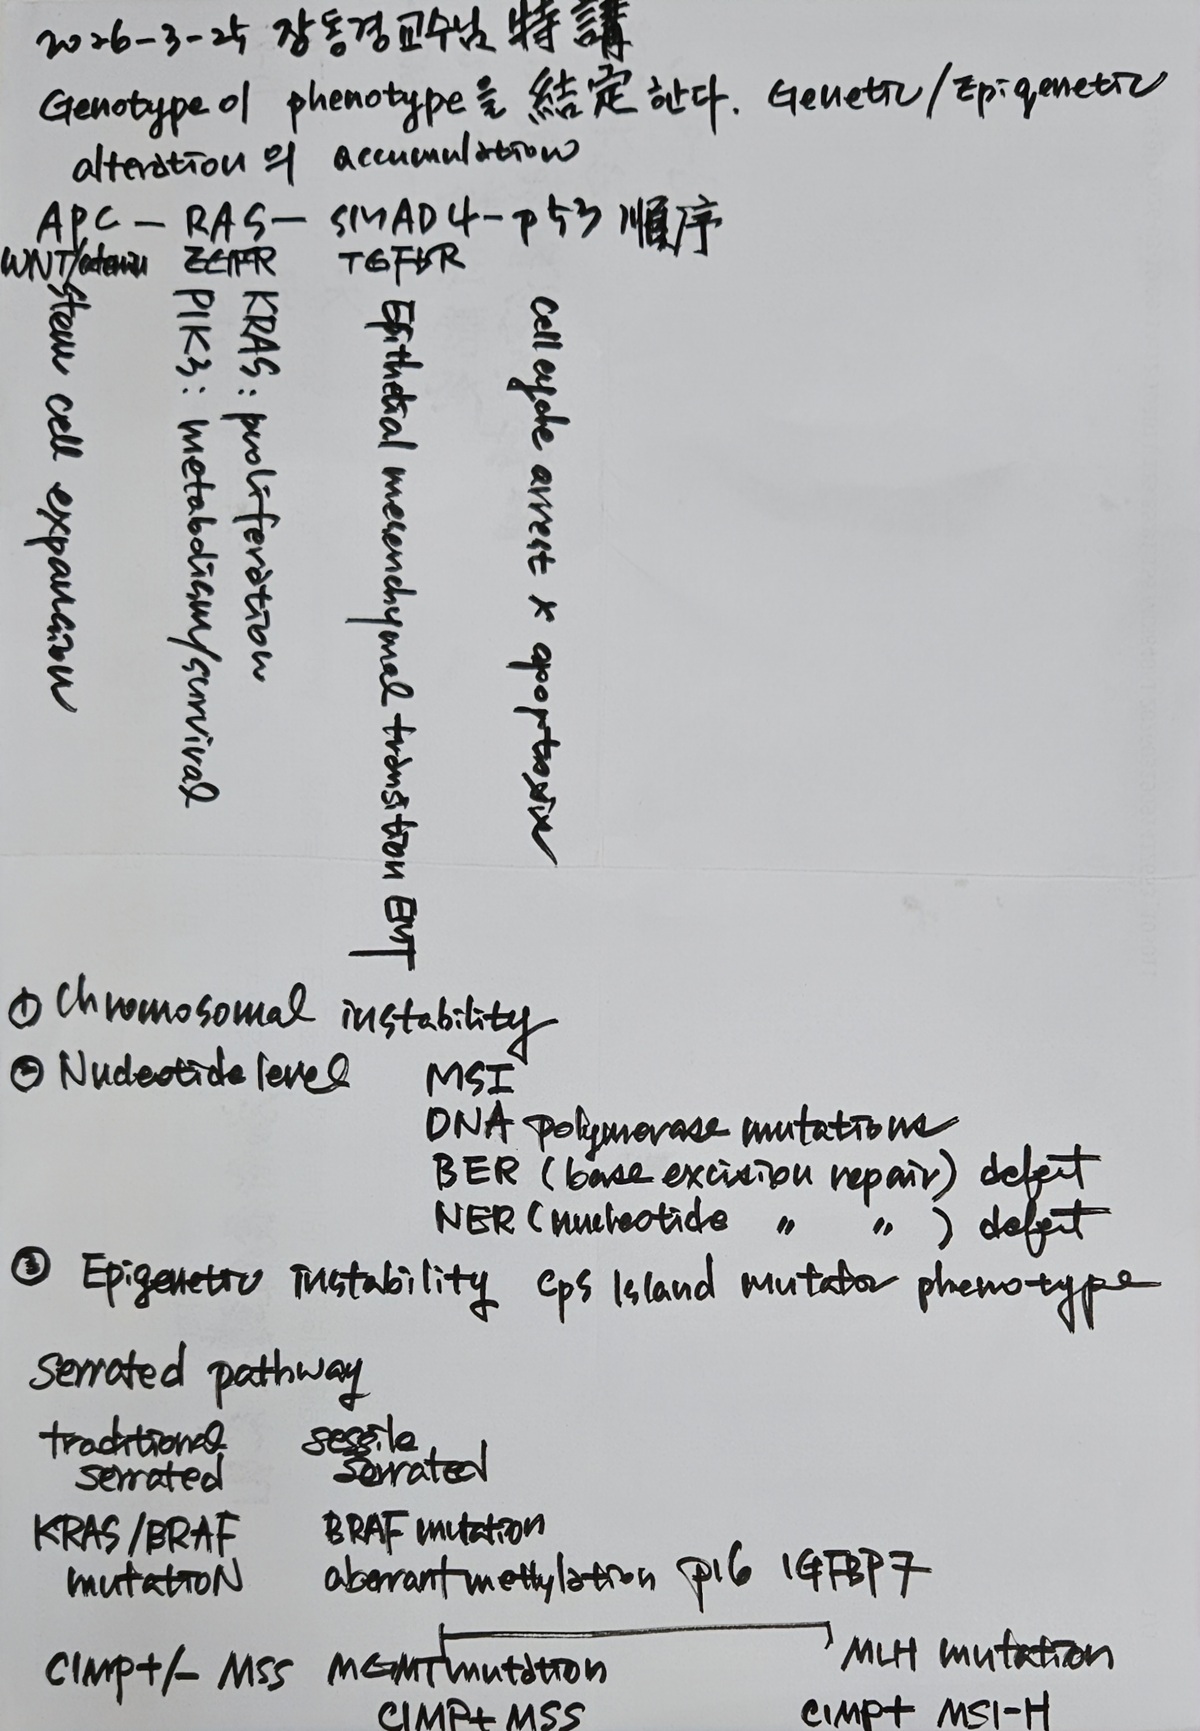 2026-3-25 장동경교수님 特講
Genotype이 phenotype을 結定한다. Genetic/Epigenetic
alteration의 accumulation
APC - RAS - SMAD4 - p53 順序
WNT/catenin EGFR TGFbR
stem cell expansion
PIK3: metabolism/survival
KRAS: proliferation
Epithelial mesenchymal transition EMT
cell cycle arrest x apoptosis
① Chromosomal instability
② Nucleotide level MSI
DNA polymerase mutations
BER (base excision repair) defect
NER (nucleotide " " ) defect
③ Epigenetic instability CpS Island mutator phenotype
serrated pathway
traditional sessile
serrated serrated
KRAS/BRAF BRAF mutation
mutation aberrant methylation p16 IGFBP7
CIMP+/- MSS MGMT mutation MLH mutation
CIMP+ MSS CIMP+ MSI-H